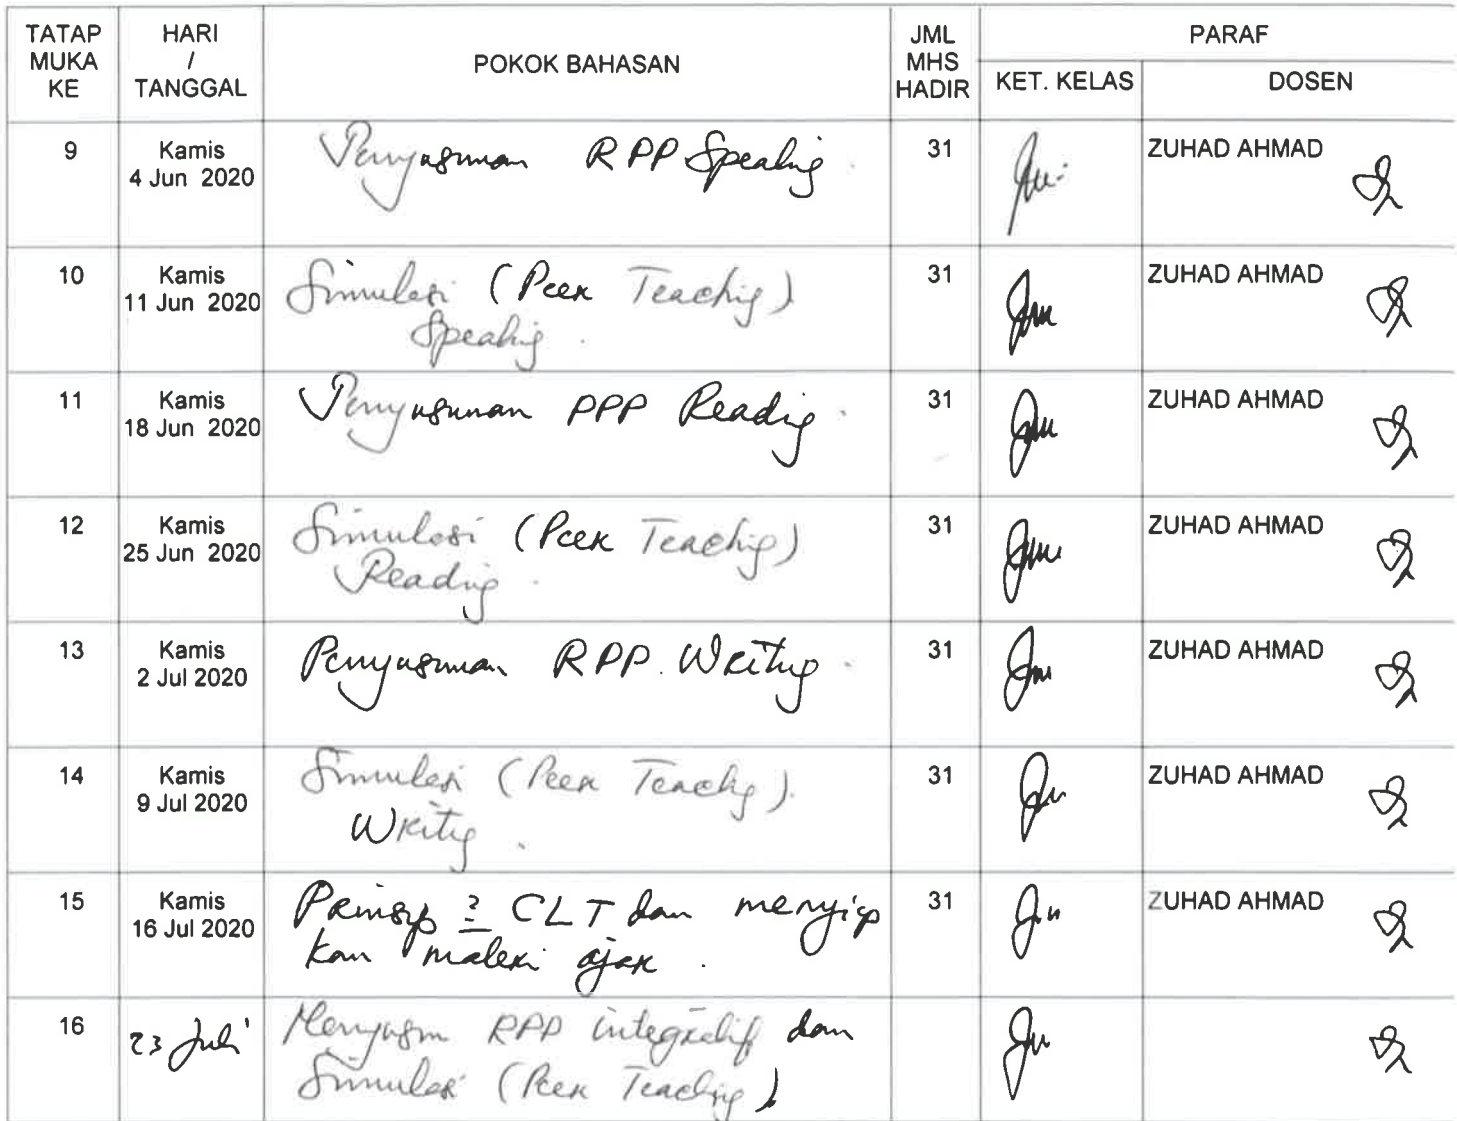 TATAP MUKA KE
HARI / TANGGAL
POKOK BAHASAN
JML MHS HADIR
PARAF
KET. KELAS
DOSEN
9
Kamis
4 Jun 2020
Penyusunan RPP Speaking.
31
ZUHAD AHMAD
10
Kamis
11 Jun 2020
Simulasi (Peer Teaching)
Speaking.
31
ZUHAD AHMAD
11
Kamis
18 Jun 2020
Penyusunan PPP Reading.
31
ZUHAD AHMAD
12
Kamis
25 Jun 2020
Simulasi (Peer Teaching)
Reading.
31
ZUHAD AHMAD
13
Kamis
2 Jul 2020
Penyusunan RPP. Writing.
31
ZUHAD AHMAD
14
Kamis
9 Jul 2020
Simulasi (Peer Teaching).
Writing.
31
ZUHAD AHMAD
15
Kamis
16 Jul 2020
Prinsip 2 CLT dan menyiap
kan materi ajar.
31
ZUHAD AHMAD
16
23 Juli
Menyusun RPP integratif dan
Simulasi (Peer Teaching)